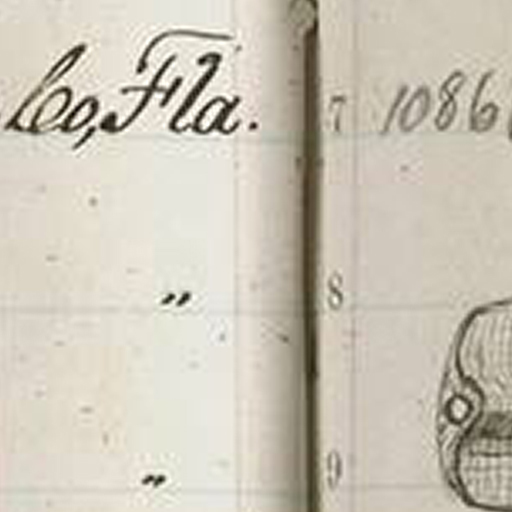 Co, Fla. 7 1086
" 8
" 9